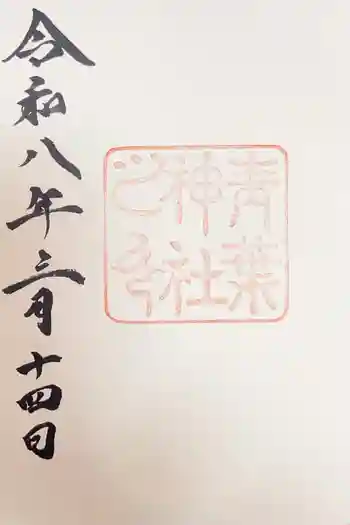 青葉
神社
令和八年三月十四日